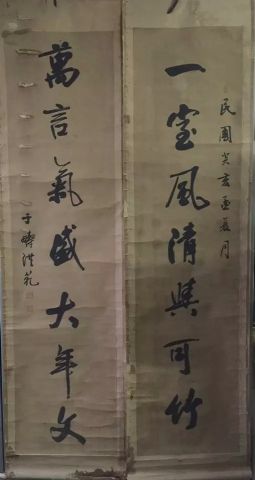 民國癸亥孟夏月
一室風清與可竹
萬言氣盛大年文